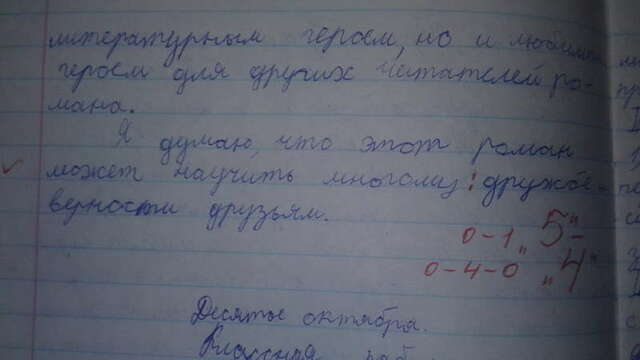 литературным героем, но и любимым
героем для других читателей ро-
мана.
Я думаю, что этот роман
может научить многому: дружбе,
верности друзьям.
0-1 "5-"
0-4-0 "4"
Десятое октября.
Классная раб